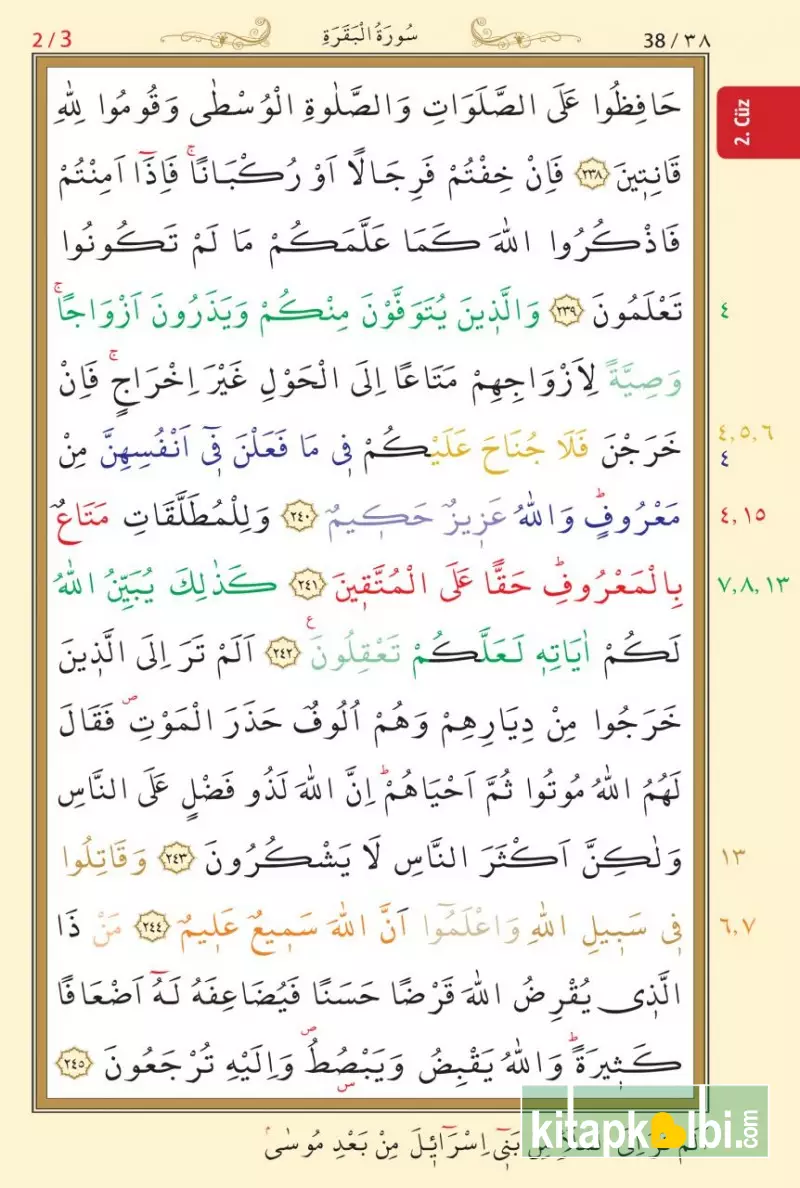 2 / 3
سُورَةُ الْبَقَرَةِ
38 / ٣٨
2. Cüz
حَافِظُوا عَلَى الصَّلَوَاتِ وَالصَّلٰوةِ الْوُسْطٰى وَقُومُوا لِلّٰهِ
قَانِت۪ينَ ﴿٢٣٨﴾ فَاِنْ خِفْتُمْ فَرِجَالًا اَوْ رُكْبَانًاۚ فَاِذَٓا اَمِنْتُمْ
فَاذْكُرُوا اللّٰهَ كَمَا عَلَّمَكُمْ مَا لَمْ تَكُونُوا
تَعْلَمُونَ ﴿٢٣٩﴾ وَالَّذ۪ينَ يُتَوَفَّوْنَ مِنْكُمْ وَيَذَرُونَ اَزْوَاجًاۚ
٤
وَصِيَّةً لِاَزْوَاجِهِمْ مَتَاعًا اِلَى الْحَوْلِ غَيْرَ اِخْرَاجٍۚ فَاِنْ
خَرَجْنَ فَلَا جُنَاحَ عَلَيْكُمْ ف۪ي مَا فَعَلْنَ ف۪ٓي اَنْفُسِهِنَّ مِنْ
٤,٥,٦
٤
مَعْرُوفٍۜ وَاللّٰهُ عَز۪يزٌ حَك۪يمٌ ﴿٢٤٠﴾ وَلِلْمُطَلَّقَاتِ مَتَاعٌ
٤,١٥
بِالْمَعْرُوفِۜ حَقًّا عَلَى الْمُتَّق۪ينَ ﴿٢٤١﴾ كَذٰلِكَ يُبَيِّنُ اللّٰهُ
٧,٨,١٣
لَكُمْ اٰيَاتِه۪ لَعَلَّكُمْ تَعْقِلُونَ۟ ﴿٢٤٢﴾ اَلَمْ تَرَ اِلَى الَّذ۪ينَ
خَرَجُوا مِنْ دِيَارِهِمْ وَهُمْ اُلُوفٌ حَذَرَ الْمَوْتِۖ فَقَالَ
لَهُمُ اللّٰهُ مُوتُوا ثُمَّ اَحْيَاهُمْۜ اِنَّ اللّٰهَ لَذُو فَضْلٍ عَلَى النَّاسِ
وَلٰكِنَّ اَكْثَرَ النَّاسِ لَا يَشْكُرُونَ ﴿٢٤٣﴾ وَقَاتِلُوا
١٣
ف۪ي سَب۪يلِ اللّٰهِ وَاعْلَمُٓوا اَنَّ اللّٰهَ سَم۪يعٌ عَل۪يمٌ ﴿٢٤٤﴾ مَنْ ذَا
٦,٧
الَّذ۪ي يُقْرِضُ اللّٰهَ قَرْضًا حَسَنًا فَيُضَاعِفَهُ لَهُٓ اَضْعَافًا
كَث۪يرَةًۜ وَاللّٰهُ يَقْبِضُ وَيَبْصُۣطُۖ وَاِلَيْهِ تُرْجَعُونَ ﴿٢٤٥﴾
بَن۪ٓي اِسْرَٓائ۪لَ مِنْ بَعْدِ مُوسٰىۢ
kitapkalbi.com